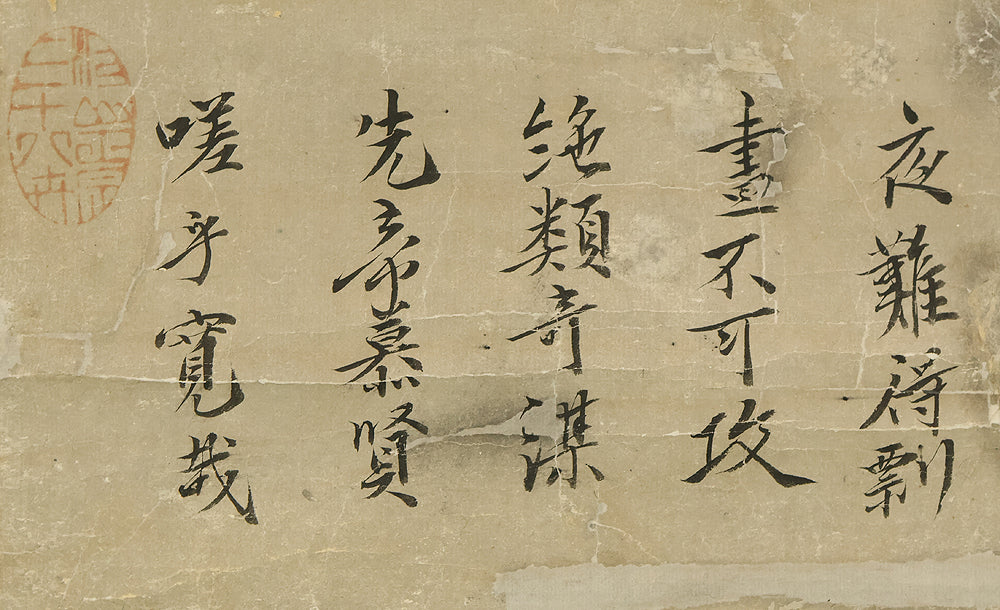 夜難得剽
晝不可攻
絶類奇謀
先帝慕賢
嗟乎寬哉